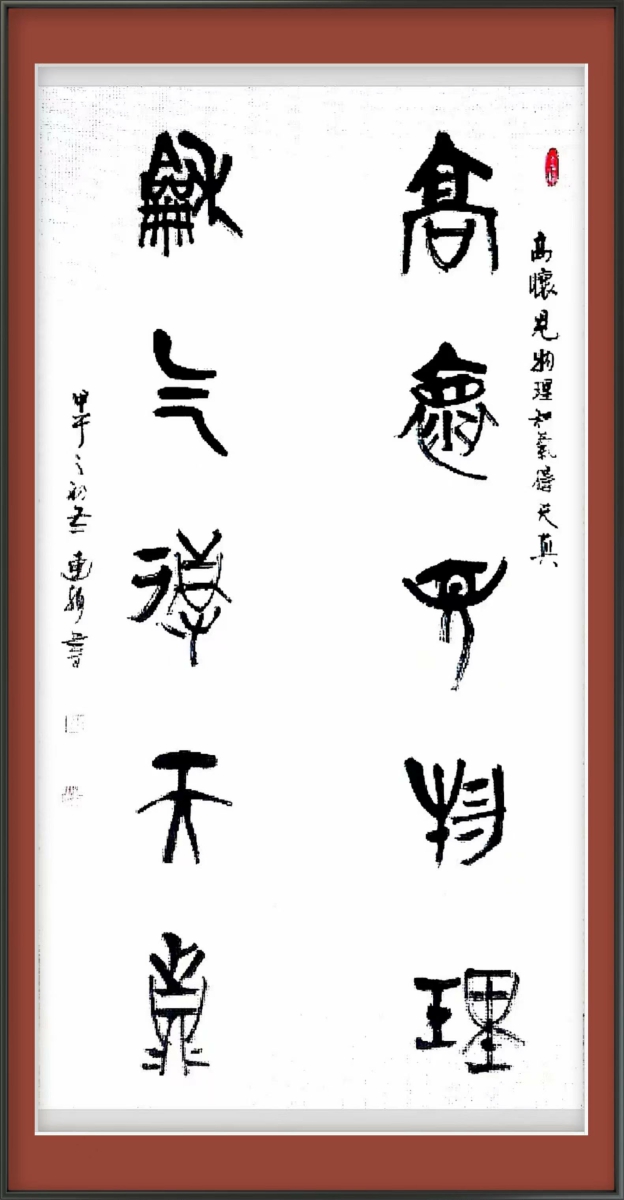 高懷見物理和氣得天真
高懷見物理
龢气得天真
甲午之初 連 書